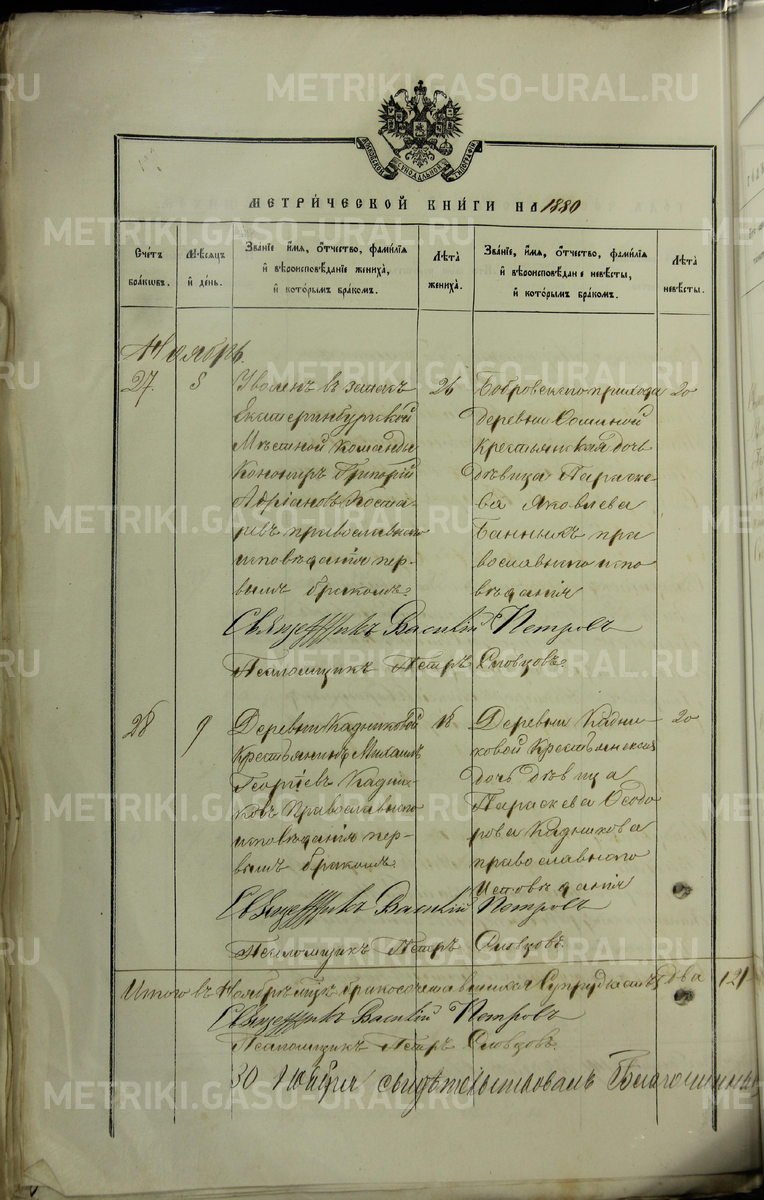 METRIKI.GASO-URAL.RU
МОСКОВСКОЙ СѴНОДАЛЬНОЙ ТИПОГРАФІИ
МЕТРИ́ЧЕСКОЙ КНИ́ГИ НА 1880
Сче́тъ бра́ковъ.
Мѣ́сяцъ и҆ де́нь.
Зва́нїе и҆́мя, ѻ҆́тчество, фамилїя
и҆ вѣроисповѣ́данїе жениха̀,
и҆ кото́рымъ бра́комъ.
Лѣ́та жениха̀.
Зва́нїе, и҆́мя, ѻ҆́тчество, фамилїя
и҆ вѣроисповѣ́данїе невѣ́сты,
и҆ кото́рымъ бра́комъ.
Лѣ́та невѣ́сты.
Ноябрь.
27. 5
Уволенъ в запасъ
Екатеринбургской
Мѣстной Команды
Конониръ Григорій
Адріановъ
православнаго
исповѣданія пер-
вымъ бракомъ.
26
Бобровскаго прихода
деревни
Крестьянская дочь
дѣвица Параске-
ва Яковлева
Банныхъ пра
вославнаго испо
вѣданія
20
Священникъ Василій Петровъ
Псаломщикъ Петръ Словцовъ.
28 9
Деревни Кадниковой
Крестьянинъ Михаилъ
Георгіевъ Кадни-
ковъ Православнаго
исповѣданія пер-
вымъ бракомъ.
18
Деревни Кадни-
ковой Крестьянская
дочь дѣвица
Параскева Ѳеодо
рова Кадникова
православнаго
Исповѣданія
20
Священникъ Василій Петровъ
Псаломщикъ Петръ Словцовъ.
Итого въ Ноябрѣ бракосочетавшихся два
Священникъ Василій Петровъ
Псаломщикъ Петръ Словцовъ.
30 свидѣтельствовалъ Благочинный